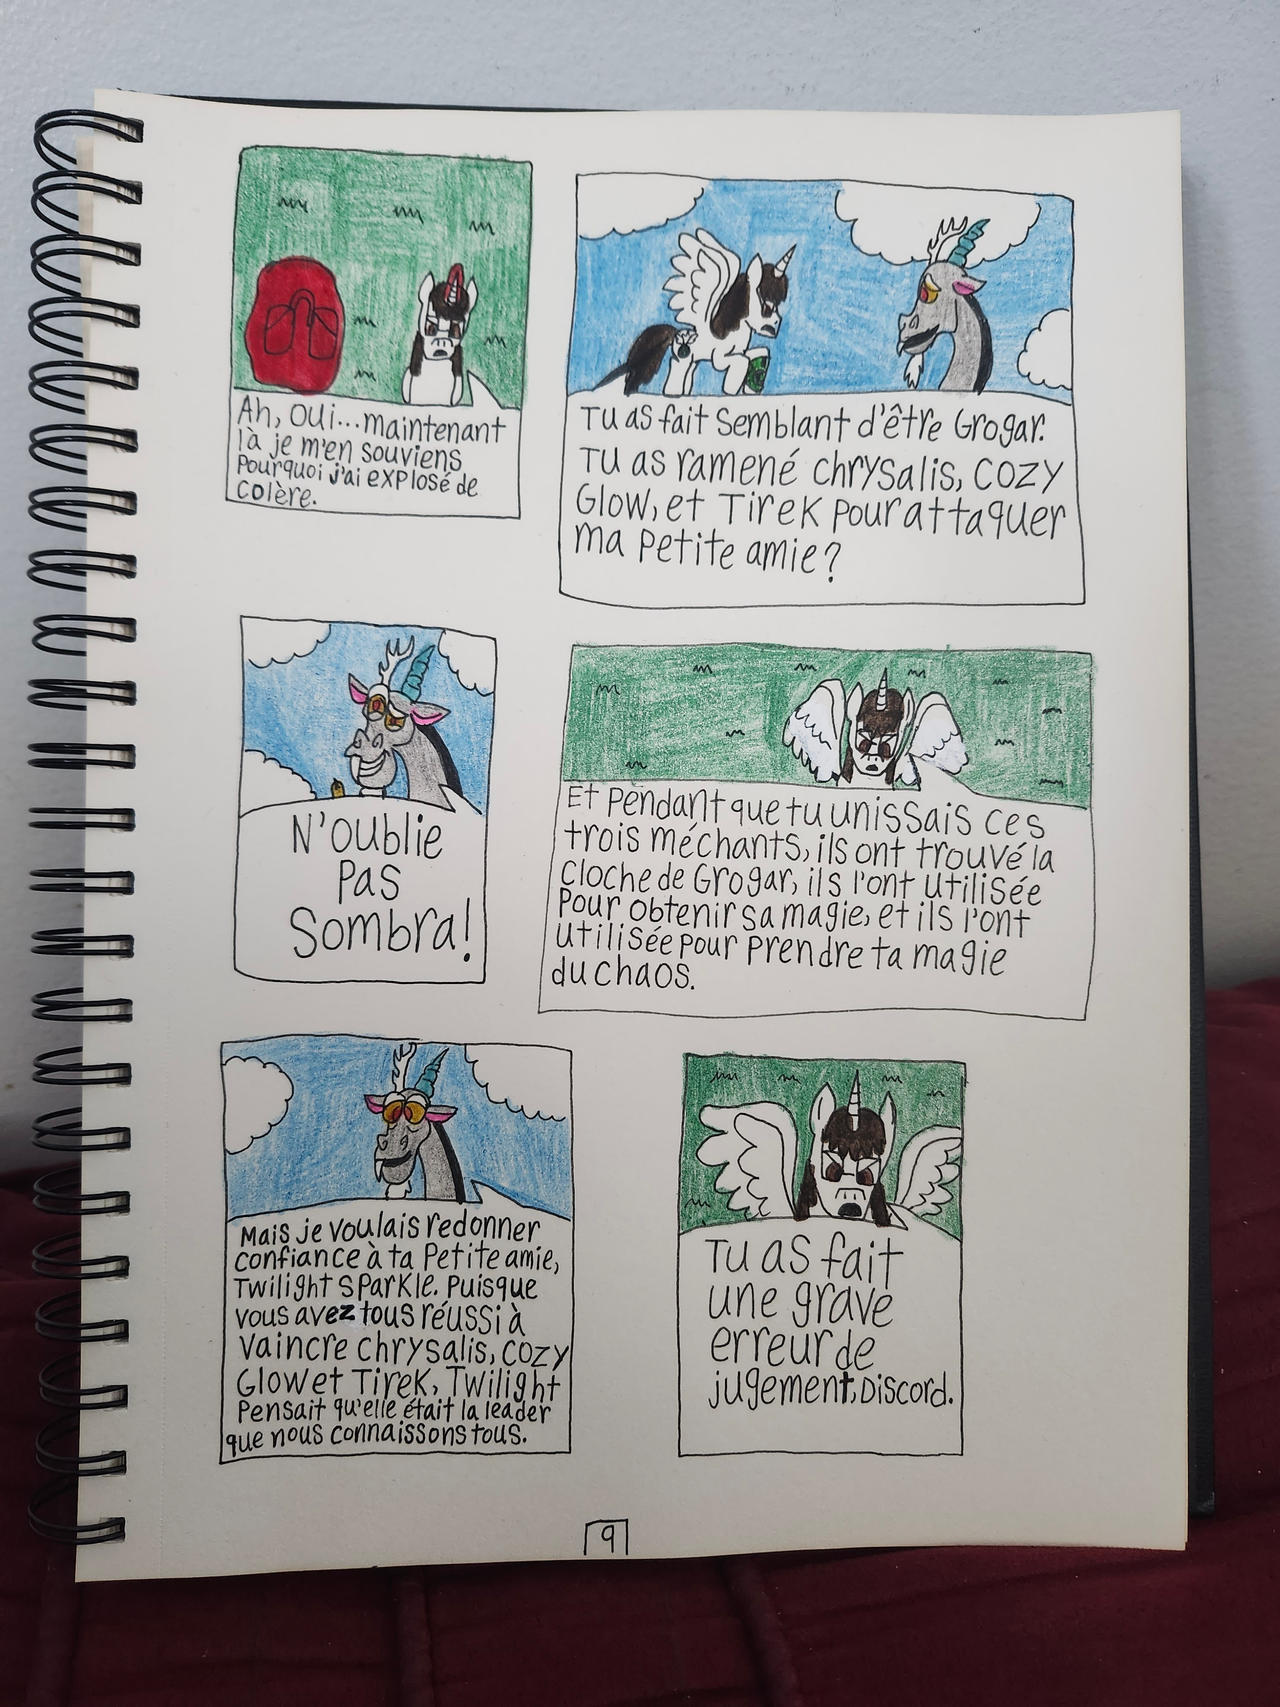 Ah, oui...maintenant
là je m'en souviens
pourquoi j'ai explosé de
colère.
Tu as fait semblant d'être Grogar.
Tu as ramené Chrysalis, Cozy
Glow, et Tirek pour attaquer
ma petite amie?
N'oublie
pas
Sombra!
Et pendant que tu unissais ces
trois méchants, ils ont trouvé la
cloche de Grogar, ils l'ont utilisée
pour obtenir sa magie, et ils l'ont
utilisée pour prendre ta magie
du chaos.
Mais je voulais redonner
confiance à ta petite amie,
Twilight Sparkle. Puisque
vous avez tous réussi à
vaincre Chrysalis, Cozy
Glow et Tirek, Twilight
pensait qu'elle était la leader
que nous connaissons tous.
Tu as fait
une grave
erreur de
jugement, Discord.
9